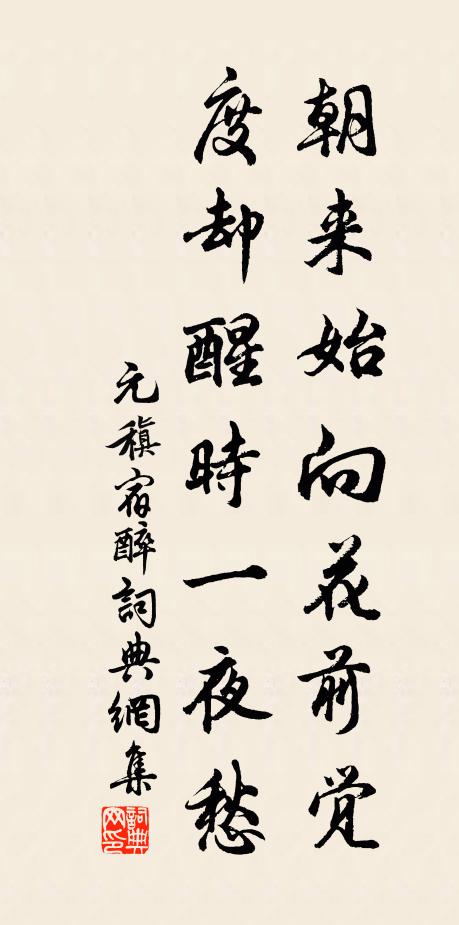 朝来始向花前覚
度却醒時一夜愁
元稹宿醉詞典網集
詞典
网印